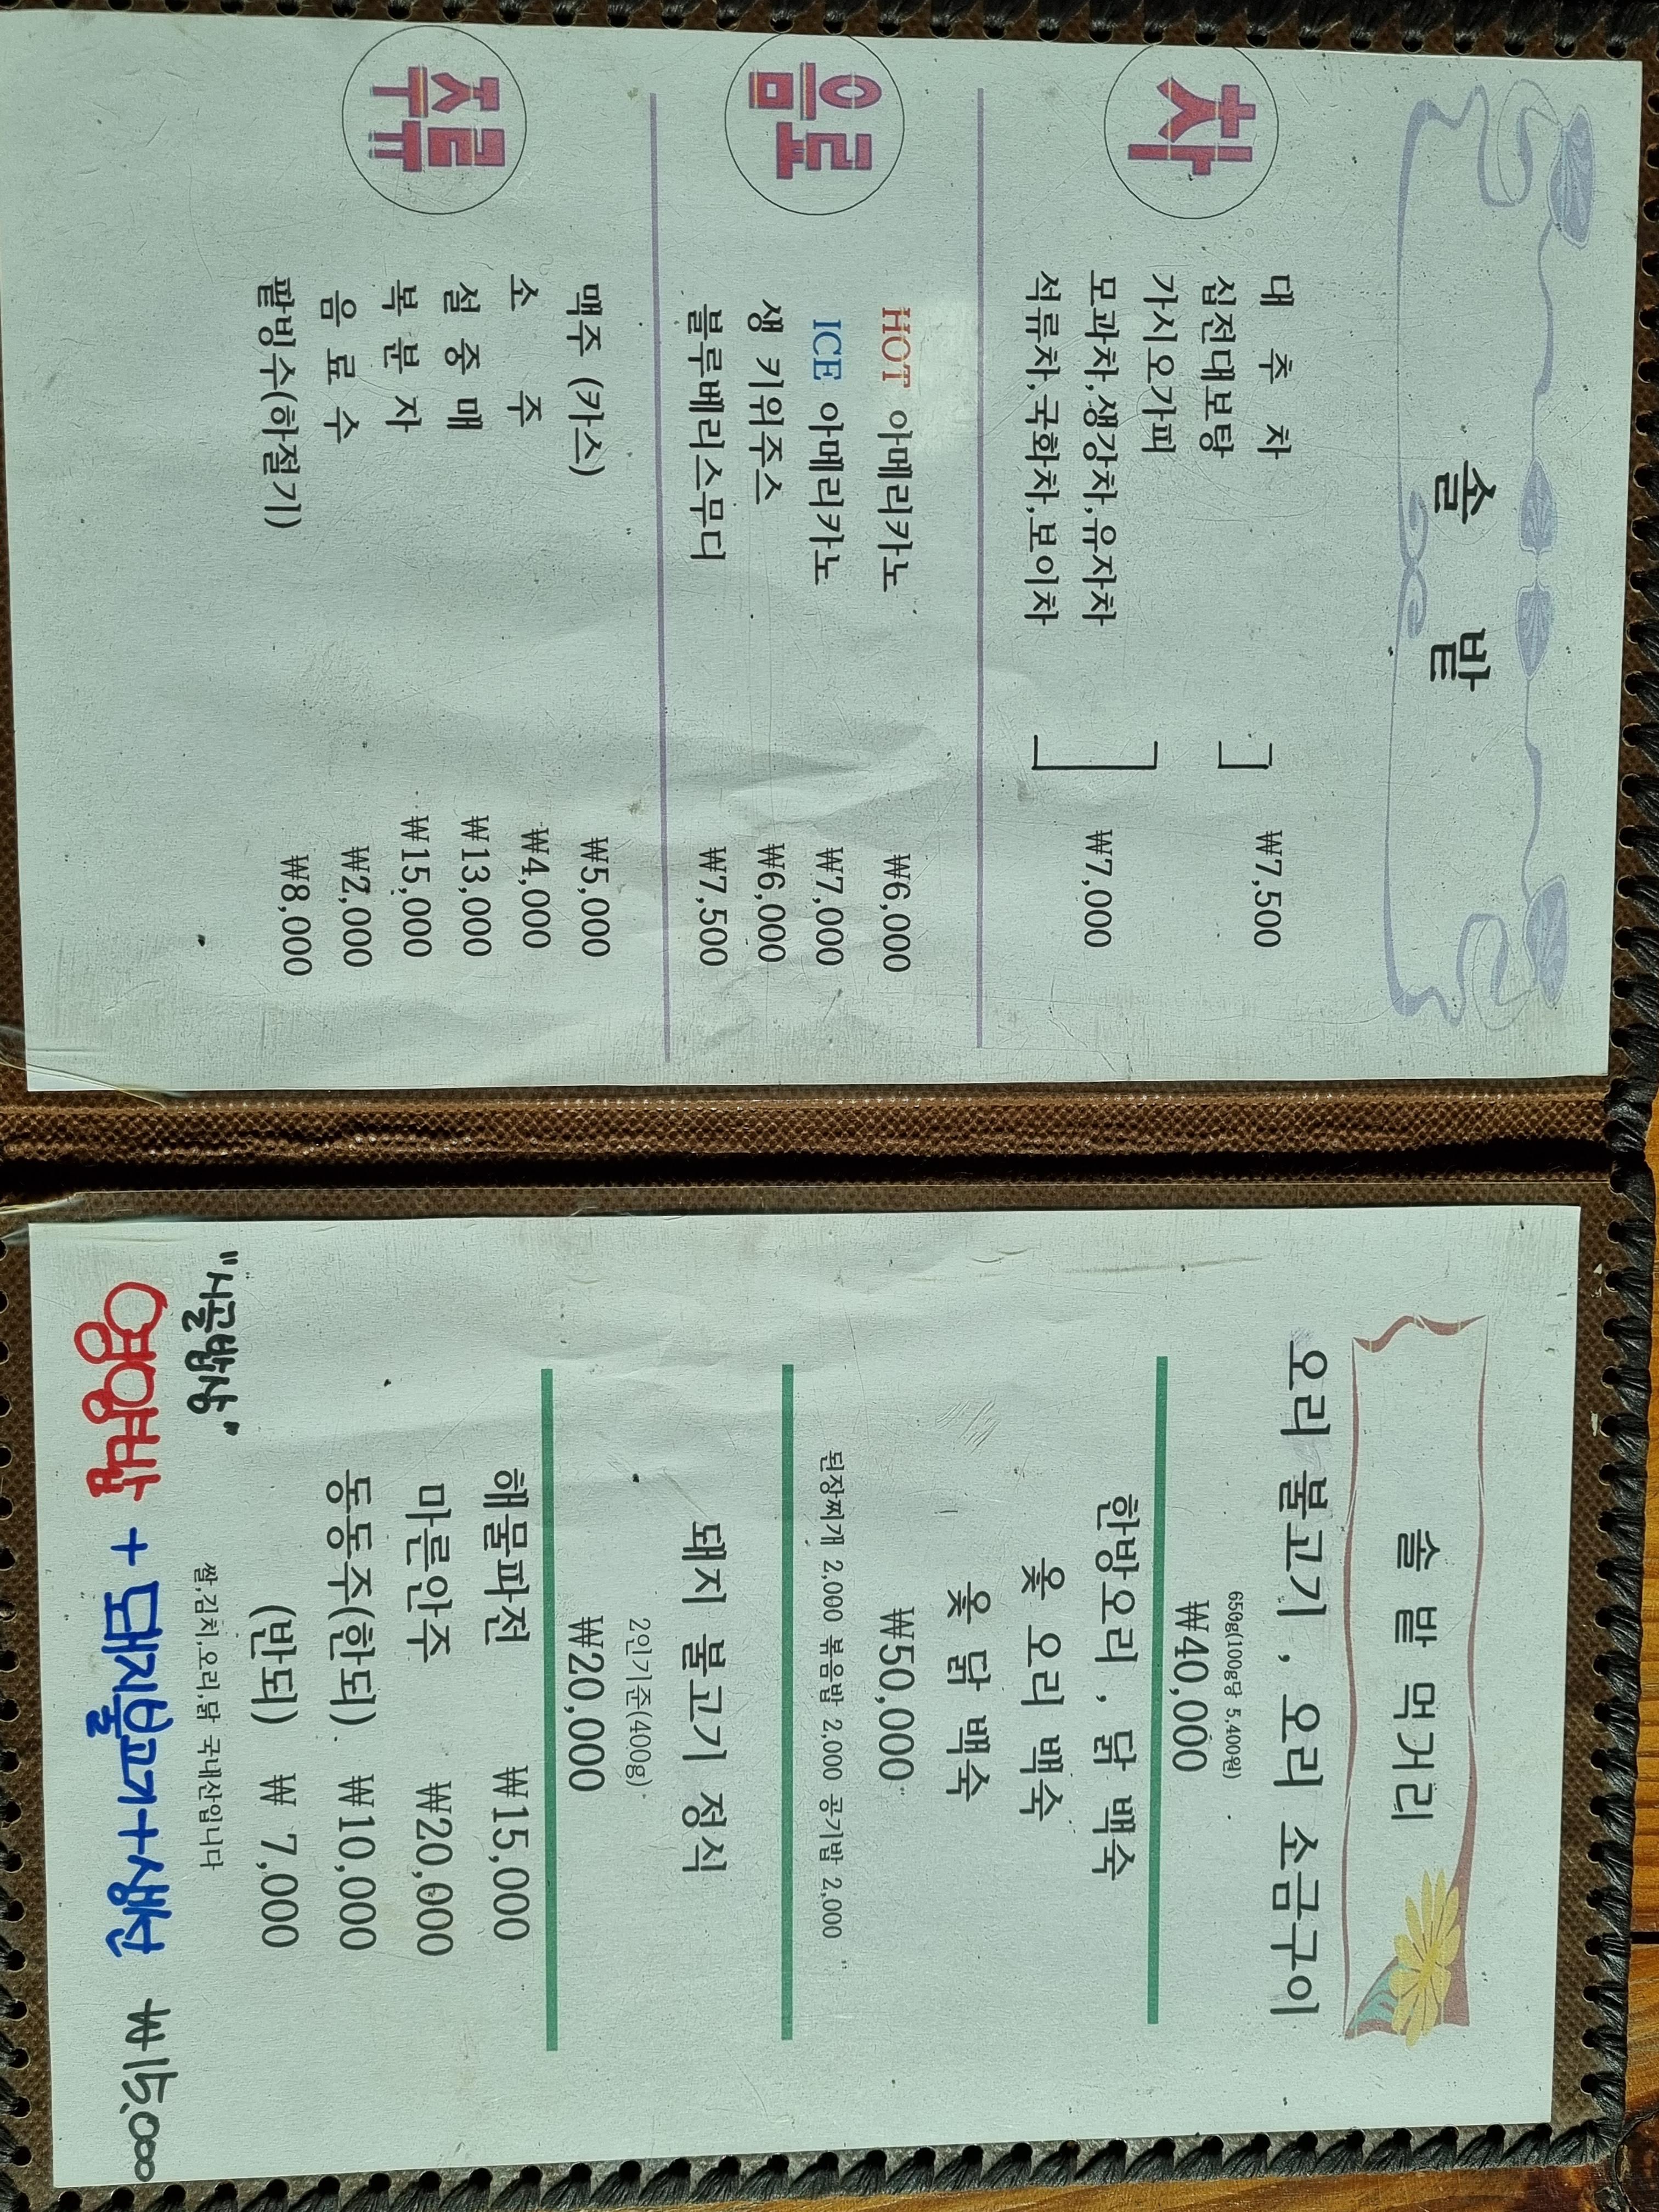 솔 밭
차
대 추 차
십전대보탕
₩7,500
가시오가피
모과차,생강차,유자차
석류차,국화차,보이차
₩7,000
음료
HOT 아메리카노 ₩6,000
ICE 아메리카노 ₩7,000
생 키위주스 ₩6,000
블루베리스무디 ₩7,500
주류
맥주 (카스) ₩5,000
소 주 ₩4,000
설 중 매 ₩13,000
복 분 자 ₩15,000
음 료 수 ₩2,000
팥빙수(하절기) ₩8,000
솔 밭 먹거리
오리 불고기 , 오리 소금구이
650g(100g당 5,400원)
₩40,000
한방오리 , 닭 백숙
옻 오리 백숙
옻 닭 백숙
₩50,000
된장찌개 2,000 볶음밥 2,000 공기밥 2,000
돼지 불고기 정식
2인기준(400g)
₩20,000
해물파전 ₩15,000
마른안주 ₩20,000
동동주(한되) ₩10,000
(반되) ₩ 7,000
쌀,김치,오리,닭 국내산입니다
"시골밥상"
영양밥 + 돼지불고기+생선 ₩15,000